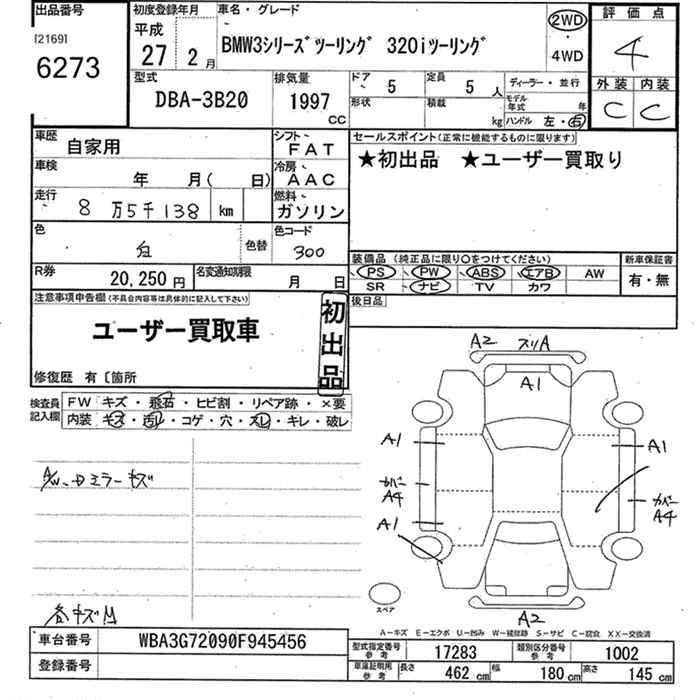 出品番号
[2169]
6273
初度登録年月
平成
27 2月
車名・グレード
BMW3シリーズツーリング 320iツーリング
2WD
・
4WD
評価点
4
外装 内装
C C
型式
DBA-3B20
排気量
1997
cc
ドア
5
定員
5人
形状
積載
kg
ディーラー・並行
モデル年式 年
ハンドル 左・右
車歴
自家用
車検
年 月( 日)
走行
8万5千138 km
シフト
FAT
冷房
AAC
燃料
ガソリン
セールスポイント(正常に機能するものに限ります)
★初出品 ★ユーザー買取り
色
白
色替
色コード
300
R券
20,250円
名変通知期限
月 日
装備品(純正品に限り○をつけてください)
PS PW ABS エアB AW
SR ナビ TV カワ
新車保証書
有・無
後日品
注意事項申告欄(不具合内容等は具体的に記入して下さい)
ユーザー買取車
初出品
修復歴 有〔箇所
検査員記入欄
FW キズ・飛石・ヒビ割・リペア跡・×要
内装 キズ・汚レ・コゲ・穴・スレ・キレ・破レ
A/W・ミラーキズ
各キズ凹
A2 スリA
A1
A1
A1
カバー
A4
カバー
A4
A1
A2
スペア
A－キズ E－エクボ U－凹み W－補修跡 S－サビ C－腐食 XX－交換済
車台番号
WBA3G72090F945456
登録番号
型式指定番号
参考
17283
類別区分番号
参考
1002
車庫証明用
参考
長さ 462 cm
幅 180 cm
高さ 145 cm